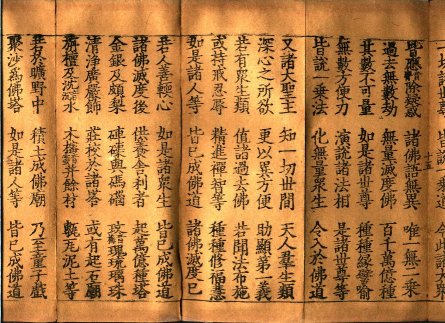 皆應除疑惑 諸佛語無異 唯一無二乘
過去無數劫 無量滅度佛 百千萬億種
其數不可量 如是諸世尊 種種緣譬喻
無數方便力 演說諸法相 是諸世尊等
皆說一乘法 化無量眾生 令入於佛道
又諸大聖主 知一切世間 天人群生類
深心之所欲 更以異方便 助顯第一義
若有眾生類 值諸過去佛 若聞法布施
或持戒忍辱 精進禪智等 種種修福慧
如是諸人等 皆已成佛道 諸佛滅度已
若人善軟心 如是諸眾生 皆已成佛道
諸佛滅度後 供養舍利者 起萬億種塔
金銀及頗梨 硨磲與碼碯 玫瑰琉璃珠
清淨廣嚴飾 莊校於諸塔 或有起石廟
栴檀及沈水 木樒并餘材 甎瓦泥土等
若於曠野中 積土成佛廟 乃至童子戲
聚沙為佛塔 如是諸人等 皆已成佛道